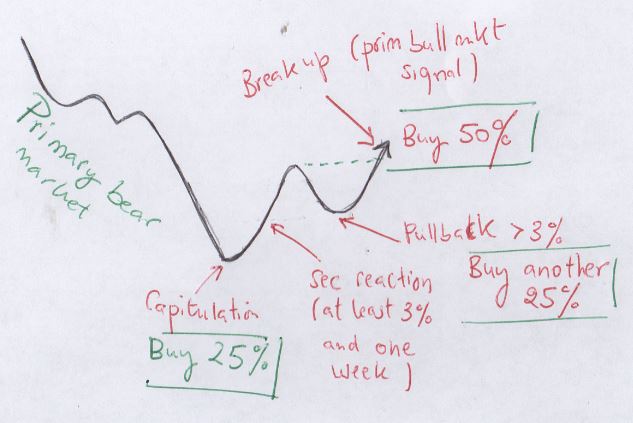 Break up (prim bull mkt
signal)
Buy 50%
Primary bear
market
Pullback > 3%
Buy another
25%
Sec reaction
(at least 3%
and one
week)
Capitulation
Buy 25%